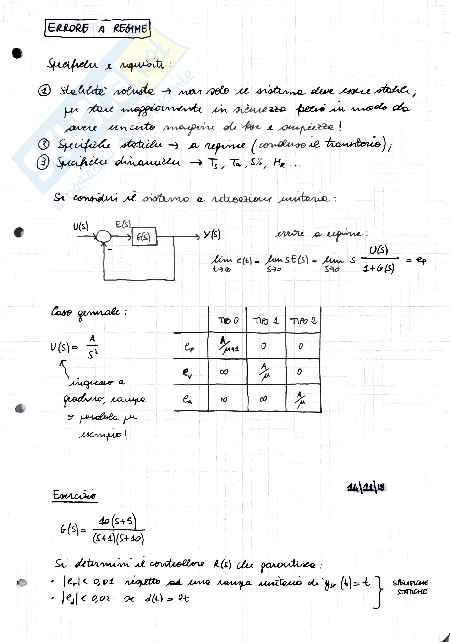 ERRORE A REGIME
Specifiche e requisiti:
① Stabilità robusta → non solo il sistema deve essere stabile,
per stare maggiormente in sicurezza però in modo da
avere un certo margine di fase e ampiezza!
② Specifiche statiche → a regime (concluso il transitorio);
③ Specifiche dinamiche → Ts, Ta, S%, Mr ...
Si consideri il sistema a retroazione unitaria:
U(S) E(S) G(S) Y(S)
-
errore a regime:
lim e(t) = lim SE(S) = lim S U(S)/(1+G(S)) = ep
t→∞ S→0 S→0
Caso generale:
U(S) = A/S^i
ingresso a
gradino, rampa
o parabola per
esempio!
TIPO 0 TIPO 1 TIPO 2
ep A/μ+1 0 0
ev ∞ A/μ 0
ea ∞ ∞ A/μ
14/11/18
Esercizio
G(S) = 10(S+5)/((S+1)(S+10))
Si determini il controllore R(S) che garantisca:
• |er| < 0,01 rispetto ad una rampa unitaria di (t) = t
• |ed| < 0,02 se d(t) = 2t
SPECIFICHE
STATICHE